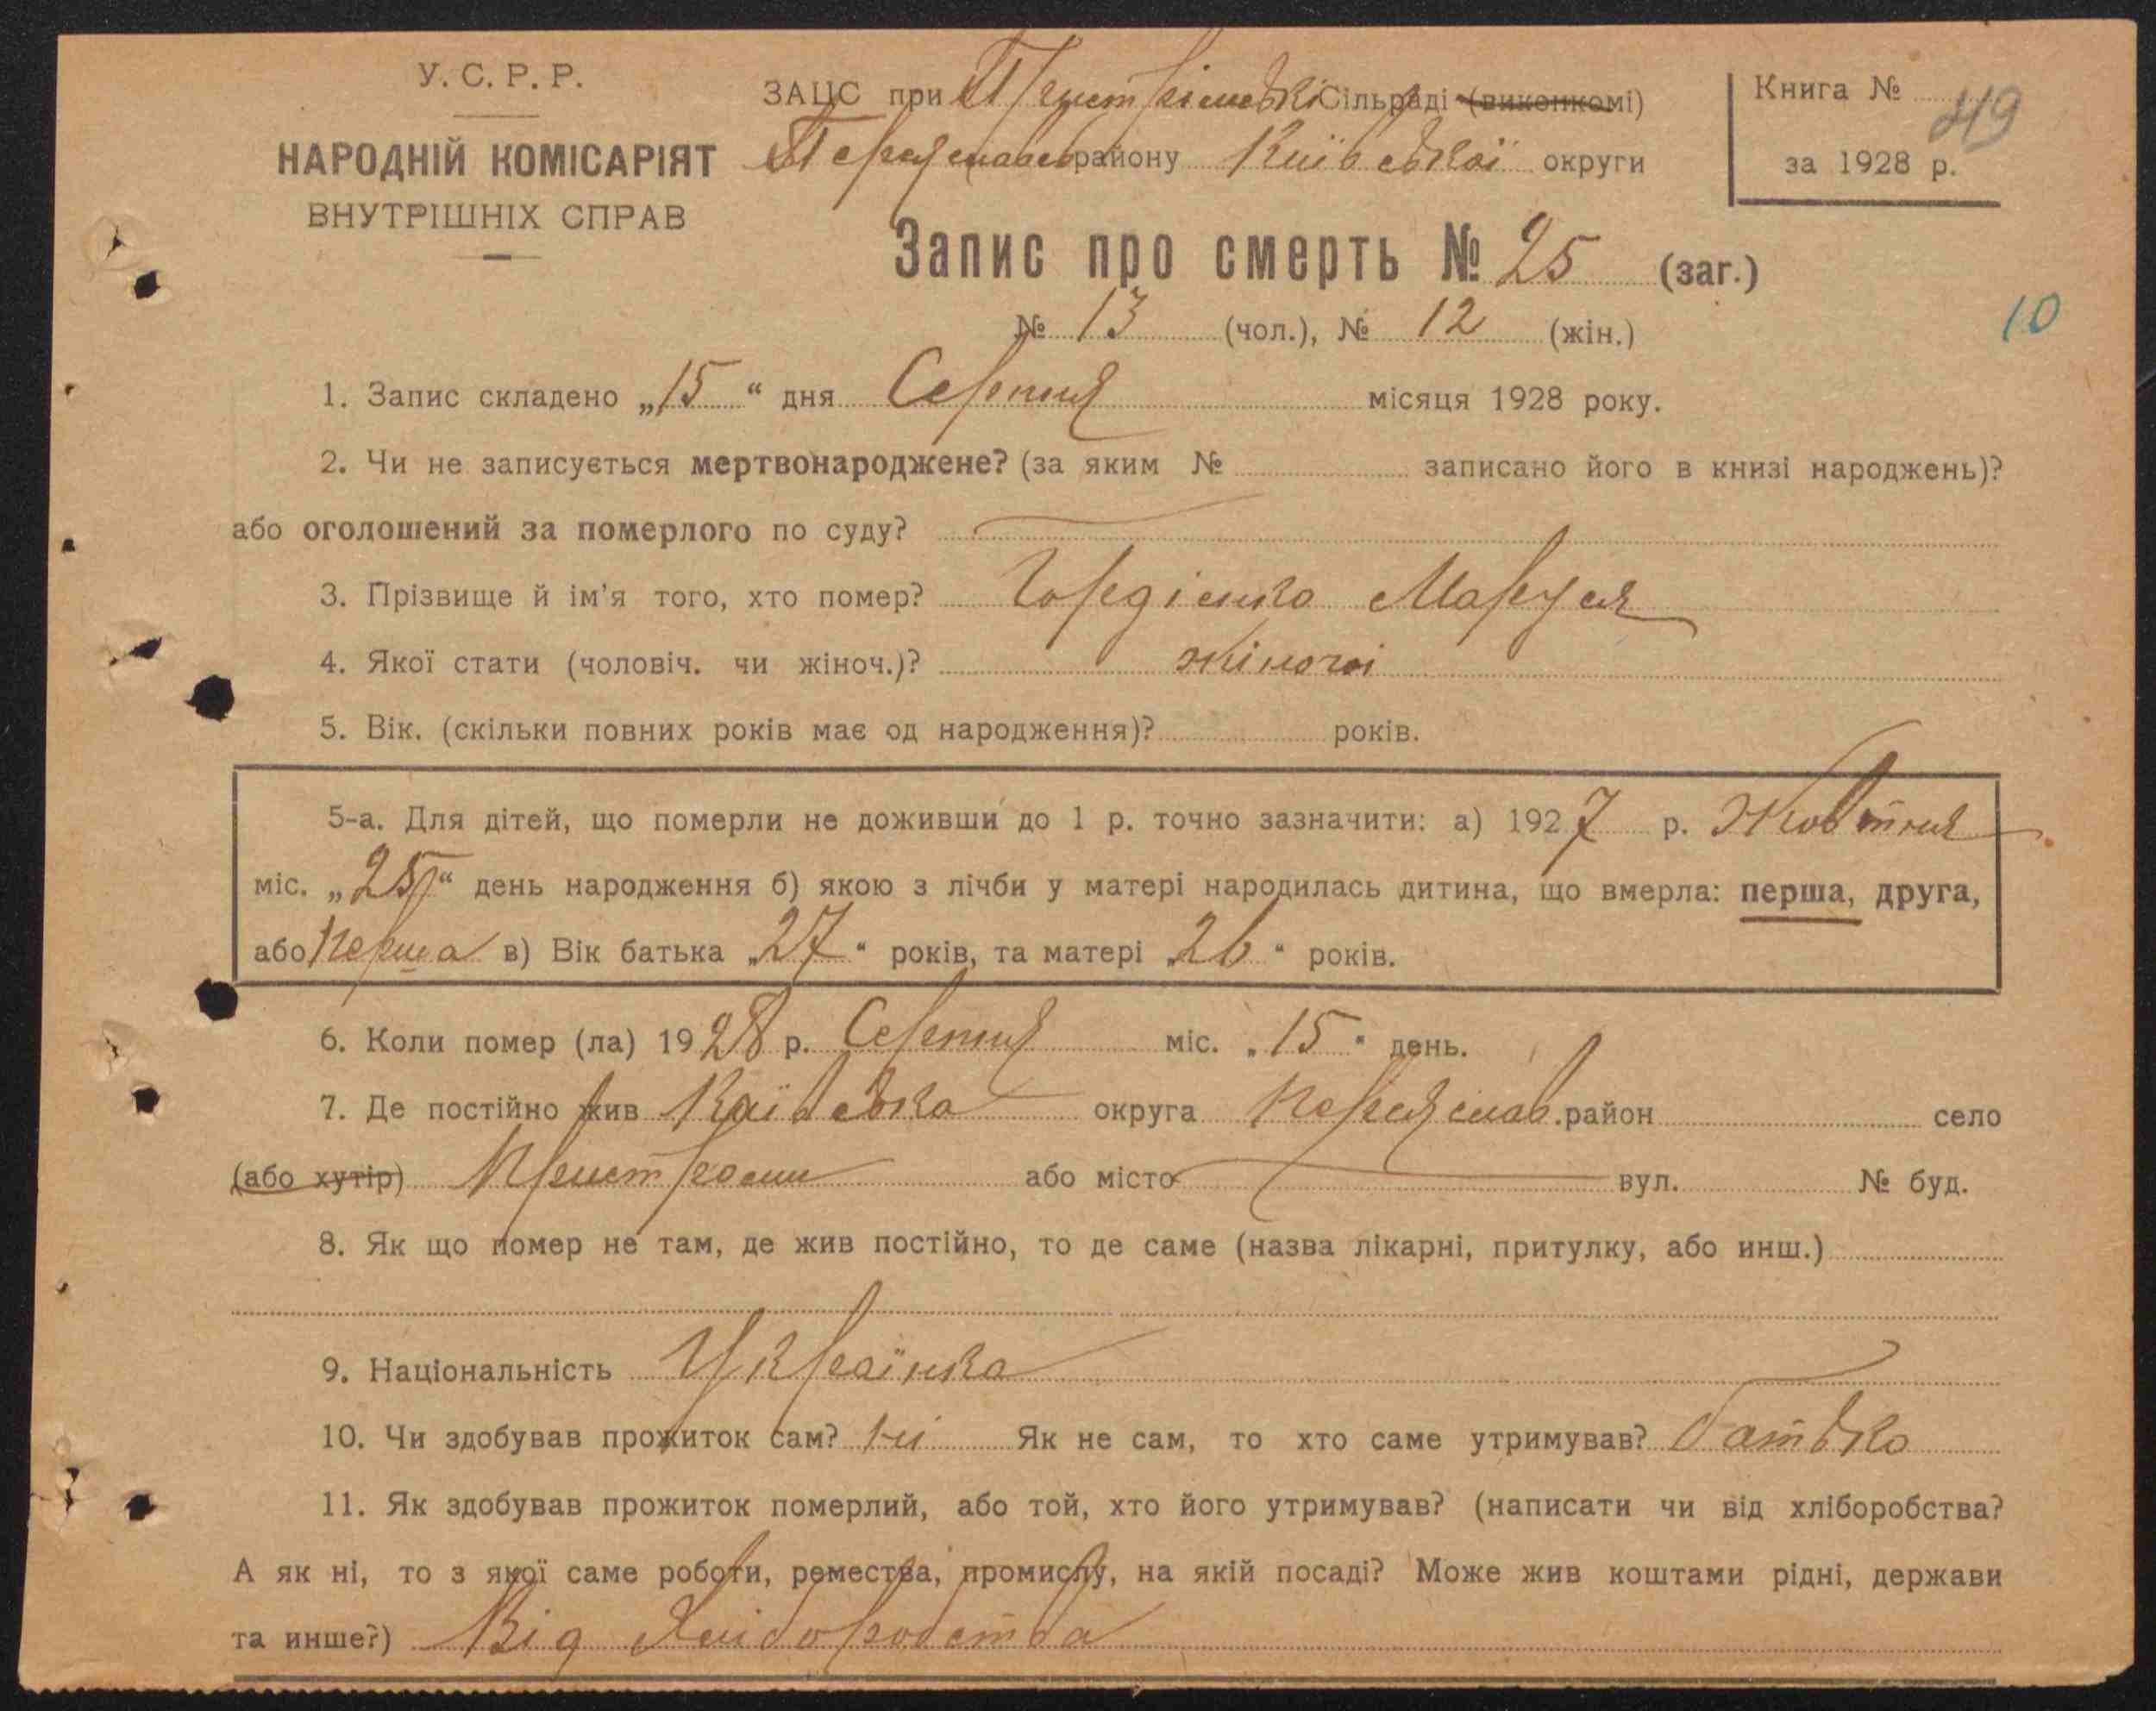 У. С. Р. Р.
НАРОДНІЙ КОМІСАРІЯТ
ВНУТРІШНІХ СПРАВ
ЗАЦС при Пристромській Сільраді (виконкомі)
Переяславськ району Київської округи
Книга №
49
за 1928 р.
Запис про смерть № 25 (заг.)
№ 13 (чол.), № 12 (жін.)
10
1. Запис складено „15“ дня Серпня місяця 1928 року.
2. Чи не записується мертвонароджене? (за яким № записано його в книзі народжень)?
або оголошений за померлого по суду?
3. Прізвище й ім'я того, хто помер? Гордієнко Маруся
4. Якої стати (чоловіч. чи жіноч.)? жіночої
5. Вік. (скільки повних років має од народження)? років.
5-а. Для дітей, що померли не доживши до 1 р. точно зазначити: а) 1927 р. Жовтня
міс. „25“ день народження б) якою з лічби у матері народилась дитина, що вмерла: перша, друга,
або перша в) Вік батька „27“ років, та матері „26“ років.
6. Коли помер (ла) 1928 р. Серпня міс. „15“ день.
7. Де постійно жив Київська округа Переяслав. район село
(або хутір) Пристроми або місто вул. № буд.
8. Як що помер не там, де жив постійно, то де саме (назва лікарні, притулку, або инш.)
9. Національність Українка
10. Чи здобував прожиток сам? ні Як не сам, то хто саме утримував? батько
11. Як здобував прожиток померлий, або той, хто його утримував? (написати чи від хліборобства?
А як ні, то з якої саме роботи, ремества, промислу, на якій посаді? Може жив коштами рідні, держави
та инше?) Від Хліборобства